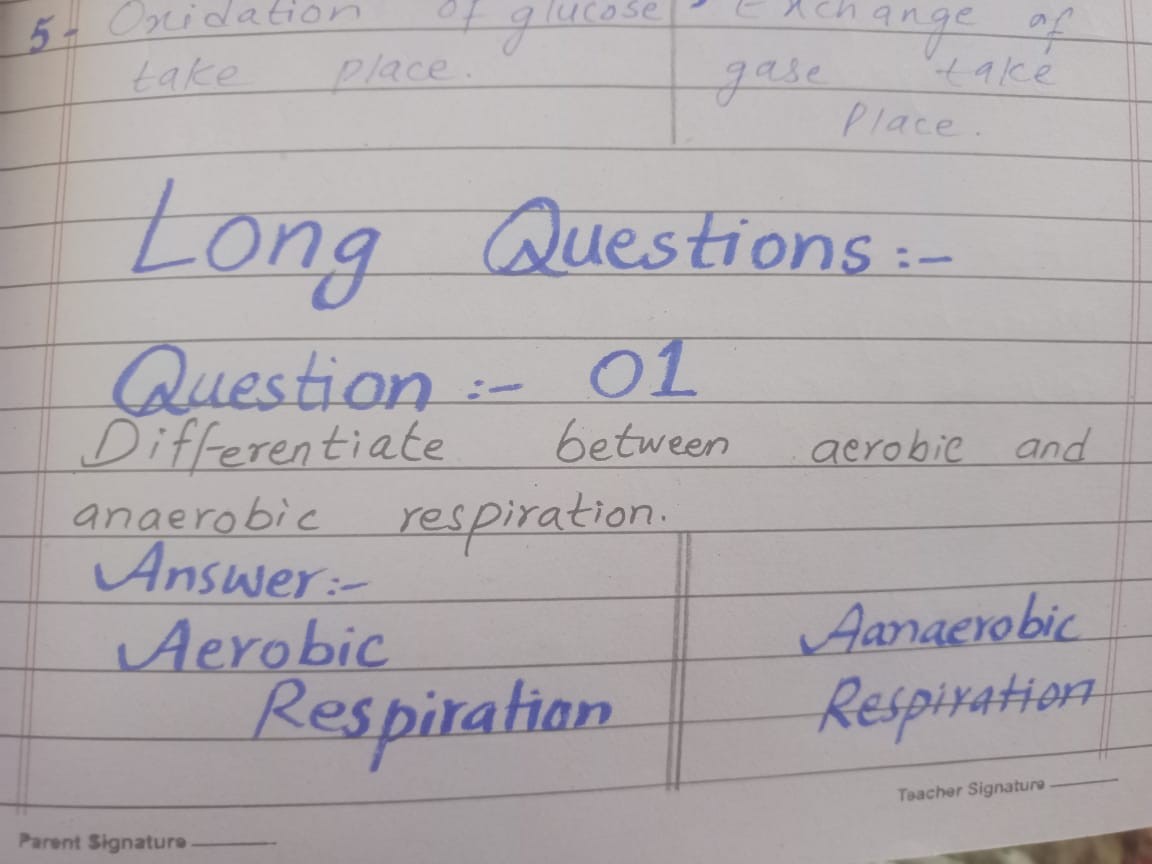 5- Oxidation of glucose Exchange of
take place. gase take
Place.
Long Questions:-
Question :- 01
Differentiate between aerobic and
anaerobic respiration.
Answer:-
Aerobic Aanaerobic
Respiration Respiration
Teacher Signature
Parent Signature